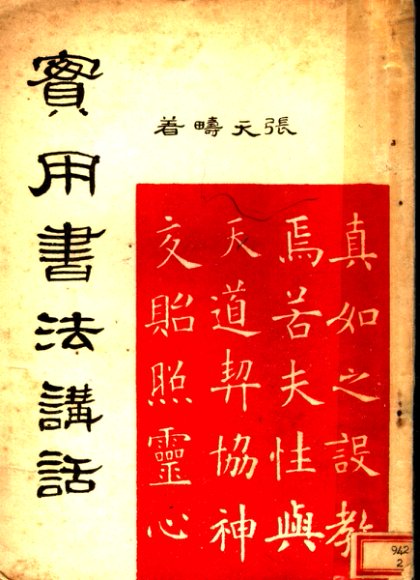 實用書法講話
張天疇着
真如之設教
焉若夫性與
天道契協神
交貽照靈心
942
2